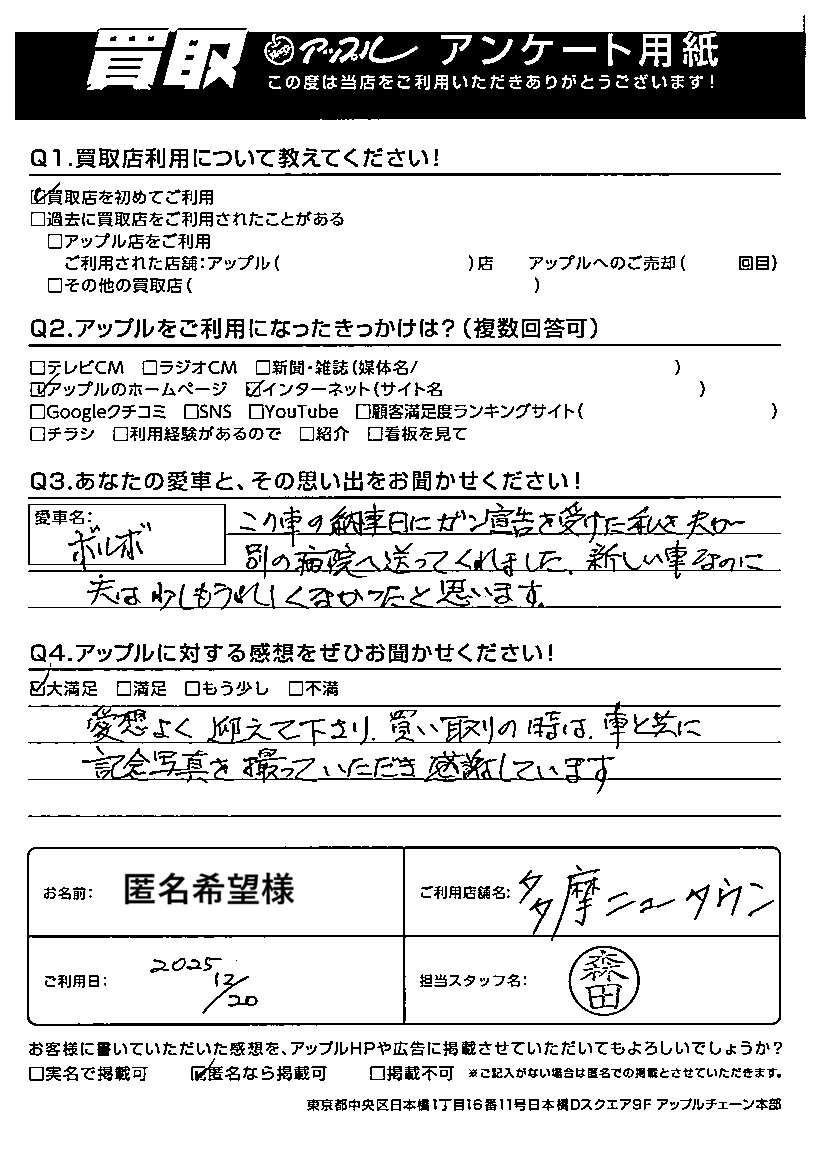 買取 アップル アンケート用紙
この度は当店をご利用いただきありがとうございます!
Q1.買取店利用について教えてください!
☑買取店を初めてご利用
□過去に買取店をご利用されたことがある
□アップル店をご利用
ご利用された店舗:アップル( )店 アップルへのご売却( 回目)
□その他の買取店( )
Q2.アップルをご利用になったきっかけは?(複数回答可)
□テレビCM □ラジオCM □新聞・雑誌(媒体名/ )
☑アップルのホームページ ☑インターネット(サイト名 )
□Googleクチコミ □SNS □YouTube □顧客満足度ランキングサイト( )
□チラシ □利用経験があるので □紹介 □看板を見て
Q3.あなたの愛車と、その思い出をお聞かせください!
愛車名:
ボルボ
この車の納車日にガン宣告を受けた私を夫が
別の病院へ送ってくれました。新しい車なのに
夫は少しもうれしくなかったと思います。
Q4.アップルに対する感想をぜひお聞かせください!
☑大満足 □満足 □もう少し □不満
愛想よく迎えて下さり、買い取りの時は、車と共に
記念写真を撮っていただき感謝しています
お名前: 匿名希望様
ご利用店舗名: 多摩ニュータウン
ご利用日: 2025 12/20
担当スタッフ名: 森田
お客様に書いていただいた感想を、アップルHPや広告に掲載させていただいてもよろしいでしょうか?
□実名で掲載可 ☑匿名なら掲載可 □掲載不可 ※ご記入がない場合は匿名での掲載とさせていただきます。
東京都中央区日本橋1丁目16番11号日本橋Dスクエア9F アップルチェーン本部